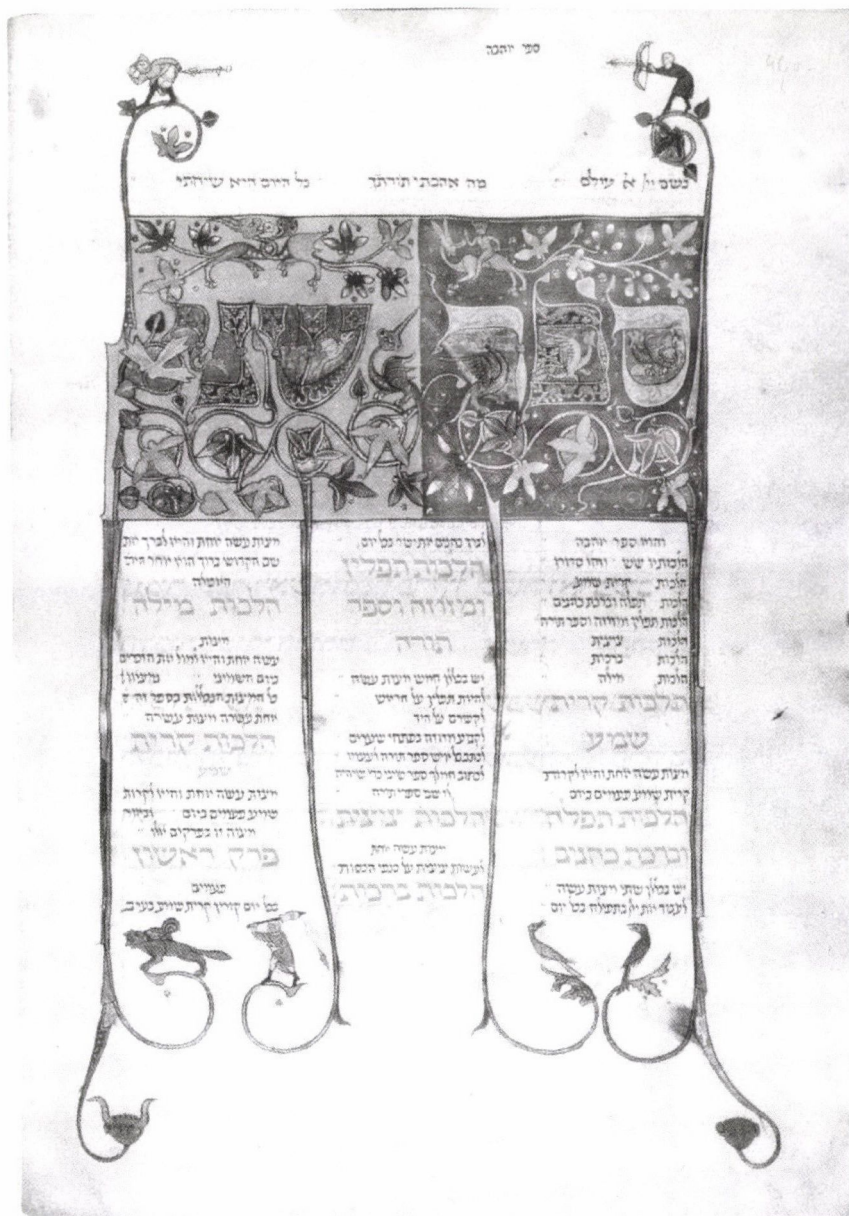 ספר אהבה
בשם יי אל עולם מה אהבתי תורתך כל היום היא שיחתי
ספר שני
והוא ספר אהבה
הלכותיו שש וזהו סדורן
הלכות קרית שמע
הלכות תפלה וברכת כהנים
הלכות תפלין ומזוזה וספר תורה
הלכות ציצית
הלכות ברכות
הלכות מילה
הלכות קרית
שמע
מצות עשה אחת והיא לקרות
קרית שמע פעמים ביום
הלכות תפלה
וברכת כהנים
יש בכללן שתי מצות עשה
לעבוד את יי בתפלה בכל יום
לברך כהנים את ישר בכל יום
הלכות תפלין
ומזוזה וספר
תורה
יש בכללן חמש מצות עשה
להיות תפלין על הראש
לקשרם על היד
לקבוע מזוזה בפתחי שערים
לכתב כל איש ספר תורה לעצמו
לכתוב המלך ספר שני כדי שיהיה
לו שני ספרי תורה
הלכות ציצית
מצות עשה אחת
לעשות ציצית על כנפי הכסות
הלכות ברכות
מצות עשה אחת והיא לברך את
שם הקדוש ברוך הוא אחר
האכילה
הלכות מילה
מצות
עשה אחת והיא למול את הזכרים
ביום השמיני נמצאו
כל המצות הנכללות בספר זה
אחת עשרה מצות עשה
הלכות קרית
שמע
מצות עשה אחת והיא לקרות
שמע פעמים ביום וביאור
מצוה זו בפרקים אלו
פרק ראשון
פעמים
בכל יום קורין קרית שמע בערב